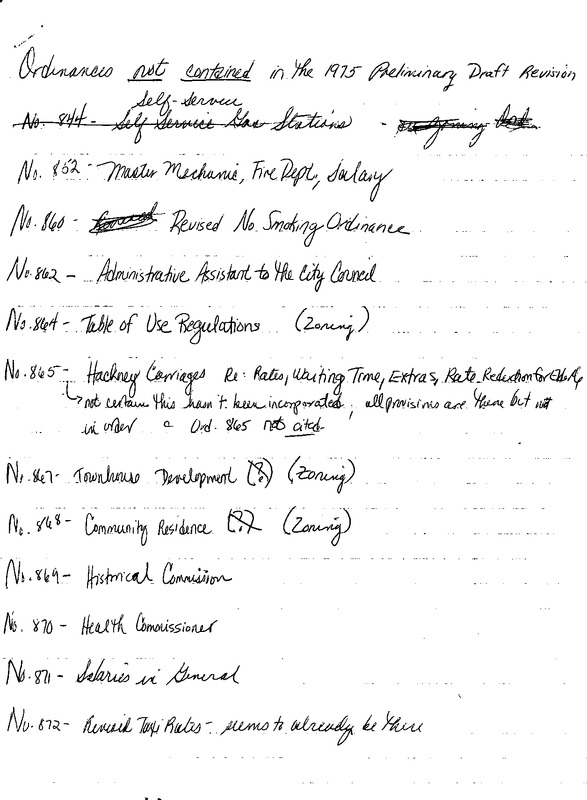 Ordinances not contained in the 1975 Preliminary Draft Revision
Self-Service
No. 844 - Self Service Gas Stations - Zoning
No. 852 - Master Mechanic, Fire Dept., Salary
No. 860 - Revised No Smoking Ordinance
No. 862 - Administrative Assistant to the City Council
No. 864 - Table of Use Regulations (Zoning)
No. 865 - Hackney Carriages Re: Rates, Waiting Time, Extras, Rate Reduction for
not certain this hasn't been incorporated; all provisions are there but not
in order Ord. 865 not cited
No. 867 - Townhouse Development (?) (Zoning)
No. 868 - Community Residence (?) (Zoning)
No. 869 - Historical Commission
No. 870 - Health Commissioner
No. 871 - Salaries in General
No. 872 - Revised Taxi Rates - seems to already be there